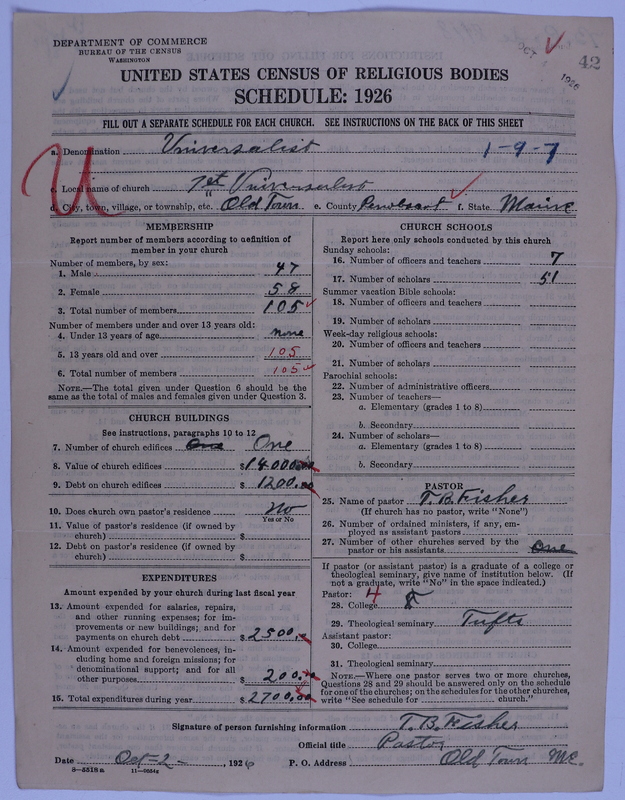 DEPARTMENT OF COMMERCE
BUREAU OF THE CENSUS
WASHINGTON
OCT 1926
42
UNITED STATES CENSUS OF RELIGIOUS BODIES
SCHEDULE: 1926
FILL OUT A SEPARATE SCHEDULE FOR EACH CHURCH. SEE INSTRUCTIONS ON THE BACK OF THIS SHEET
a. Denomination Universalist 1-9-7
U
c. Local name of church 1st Universalist
d. City, town, village, or township, etc. Old Town e. County Penobscot f. State Maine
MEMBERSHIP
Report number of members according to definition of
member in your church
Number of members, by sex:
1. Male 47
2. Female 58
3. Total number of members 105
Number of members under and over 13 years old:
4. Under 13 years of age none
5. 13 years old and over 105
6. Total number of members 105
NOTE.—The total given under Question 6 should be the
same as the total of males and females given under Question 3.
CHURCH BUILDINGS
See instructions, paragraphs 10 to 12
7. Number of church edifices One One
8. Value of church edifices $14000.00
9. Debt on church edifices $1200.00
10. Does church own pastor's residence No
Yes or No
11. Value of pastor's residence (if owned by
church) $
12. Debt on pastor's residence (if owned by
church) $
EXPENDITURES
Amount expended by your church during last fiscal year
13. Amount expended for salaries, repairs,
and other running expenses; for im-
provements or new buildings; and for
payments on church debt $2500.
14. Amount expended for benevolences, in-
cluding home and foreign missions; for
denominational support; and for all
other purposes $200.00
15. Total expenditures during year $2700.00
CHURCH SCHOOLS
Report here only schools conducted by this church
Sunday schools:
16. Number of officers and teachers 7
17. Number of scholars 51
Summer vacation Bible schools:
18. Number of officers and teachers
19. Number of scholars
Week-day religious schools:
20. Number of officers and teachers
21. Number of scholars
Parochial schools:
22. Number of administrative officers
23. Number of teachers—
a. Elementary (grades 1 to 8)
b. Secondary
24. Number of scholars—
a. Elementary (grades 1 to 8)
b. Secondary
PASTOR
25. Name of pastor T. B. Fisher
(If church has no pastor, write "None")
26. Number of ordained ministers, if any, em-
ployed as assistant pastors
27. Number of other churches served by the
pastor or his assistants One
If pastor (or assistant pastor) is a graduate of a college or
theological seminary, give name of institution below. (If
not a graduate, write "No" in the space indicated.)
Pastor: 4
28. College
29. Theological seminary Tufts
Assistant pastor:
30. College
31. Theological seminary
NOTE.—Where one pastor serves two or more churches,
Questions 28 and 29 should be answered only on the schedule
for one of the churches; on the schedules for the other churches,
write "See schedule for church."
Signature of person furnishing information T. B. Fisher
Official title Pastor
Date Oct-2-, 1926 P. O. Address Old Town Me.
8—5518a 11—9054g